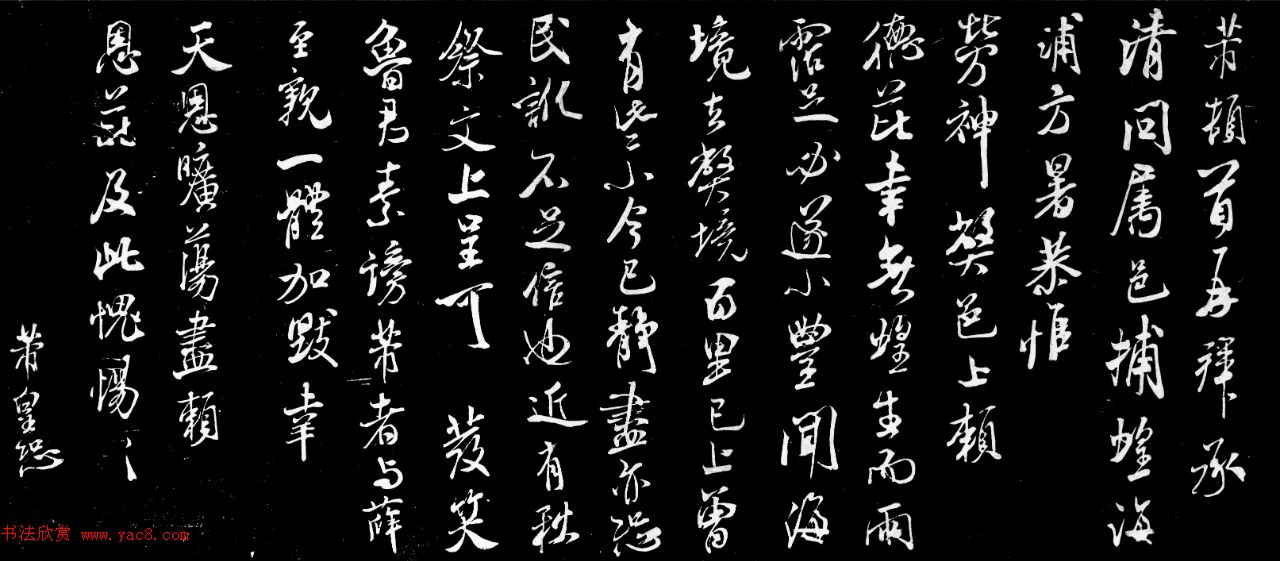 芾頓首再拜承
清問属邑捕蝗海
浦方暑恭惟
勞神弊邑上賴
德芘幸無蝗生而雨
霑足必遂小豐聞海
境去弊境百里已上曽
有些小今已靜盡亦恐
民訛不足信也近有秋
祭文上呈可 發笑
魯君素謗芾者与薛
至親一體加毀幸
天恩曠蕩盡賴
恩芘及此愧惕〻
芾皇恐
书法欣赏 www.yac8.com